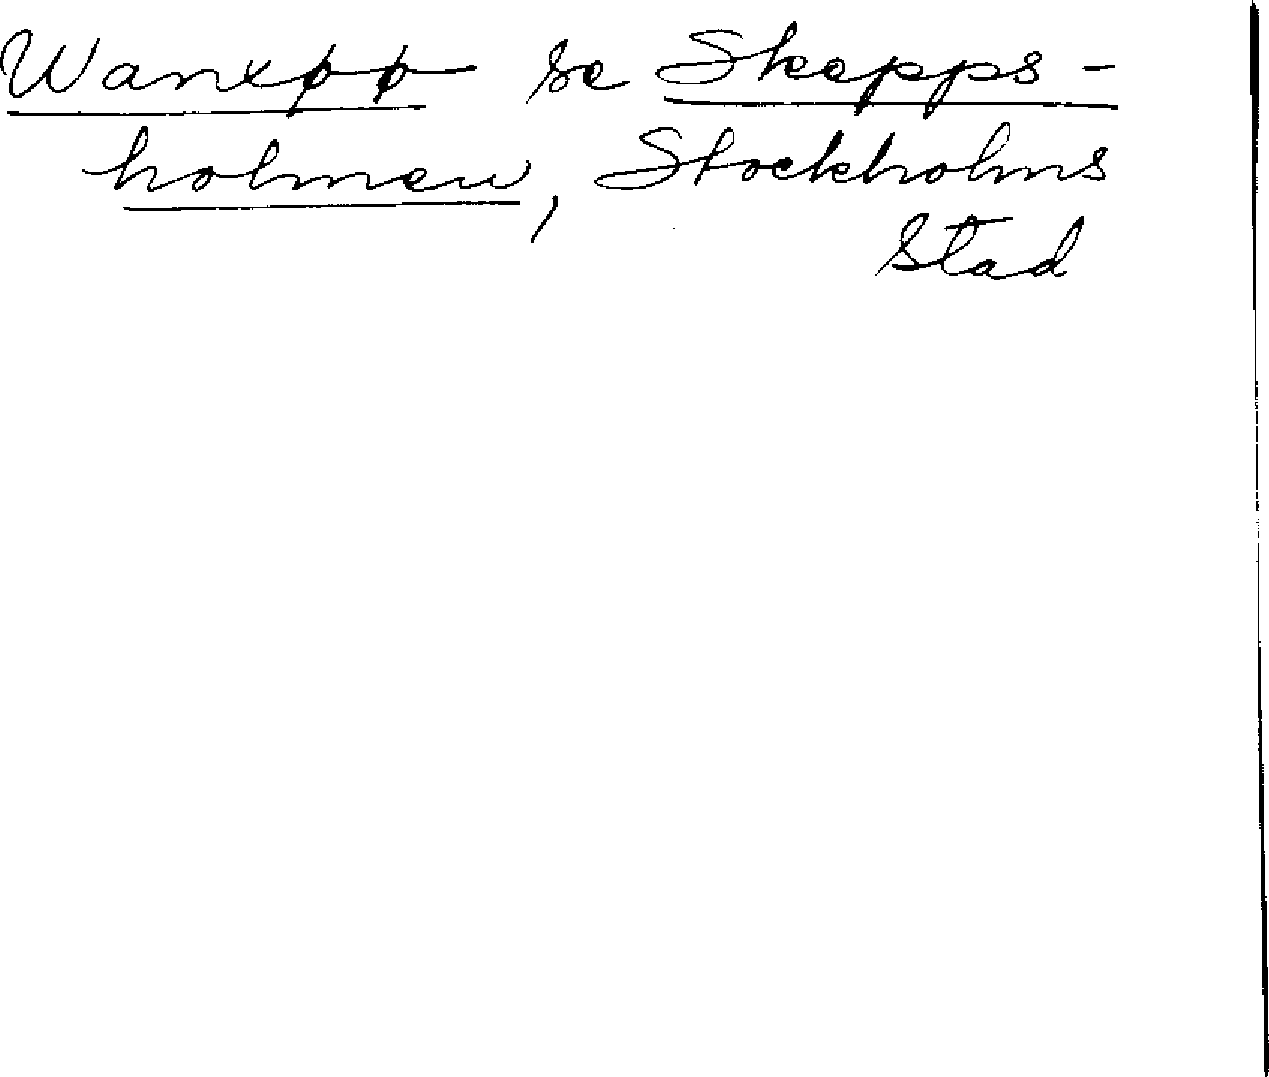 Wanxøø se Skepps-
holmen, Stockholms
stad